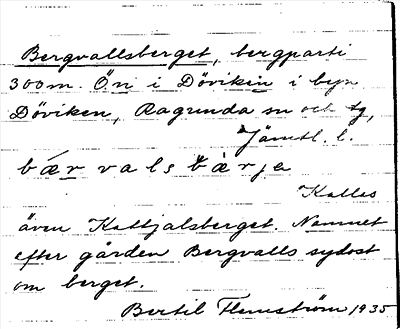 Bergvallsberget, bergparti
300 m. Ön i Döviken i byn
Döviken, Ragunda sn och tg,
Jämtl. l.
bærvalsbàrje
Kallas
även Kattjalsberget. Namnet
efter gården Bergvalls sydost
om berget.
Bertil Flemström 1935